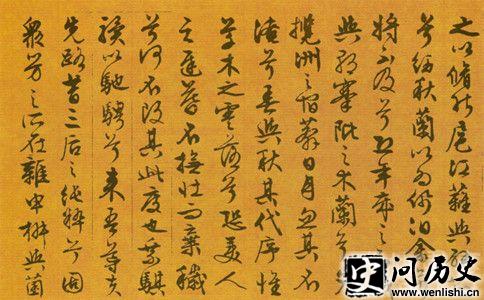 之以脩能扈江蘺與辟
兮紉秋蘭以為佩汩余
將不及兮恐年歲之
與朝搴阰之木蘭兮
攬洲之宿莽日月忽其不
淹兮春與秋其代序惟
草木之零落兮恐美人
之遲暮不撫壯而棄穢
兮何不改其此度也乘騏
驥以馳騁兮來吾導夫
先路昔三后之純粹兮固
衆芳之所在雜申椒與菌
史问历史
www.wenlishi.cn